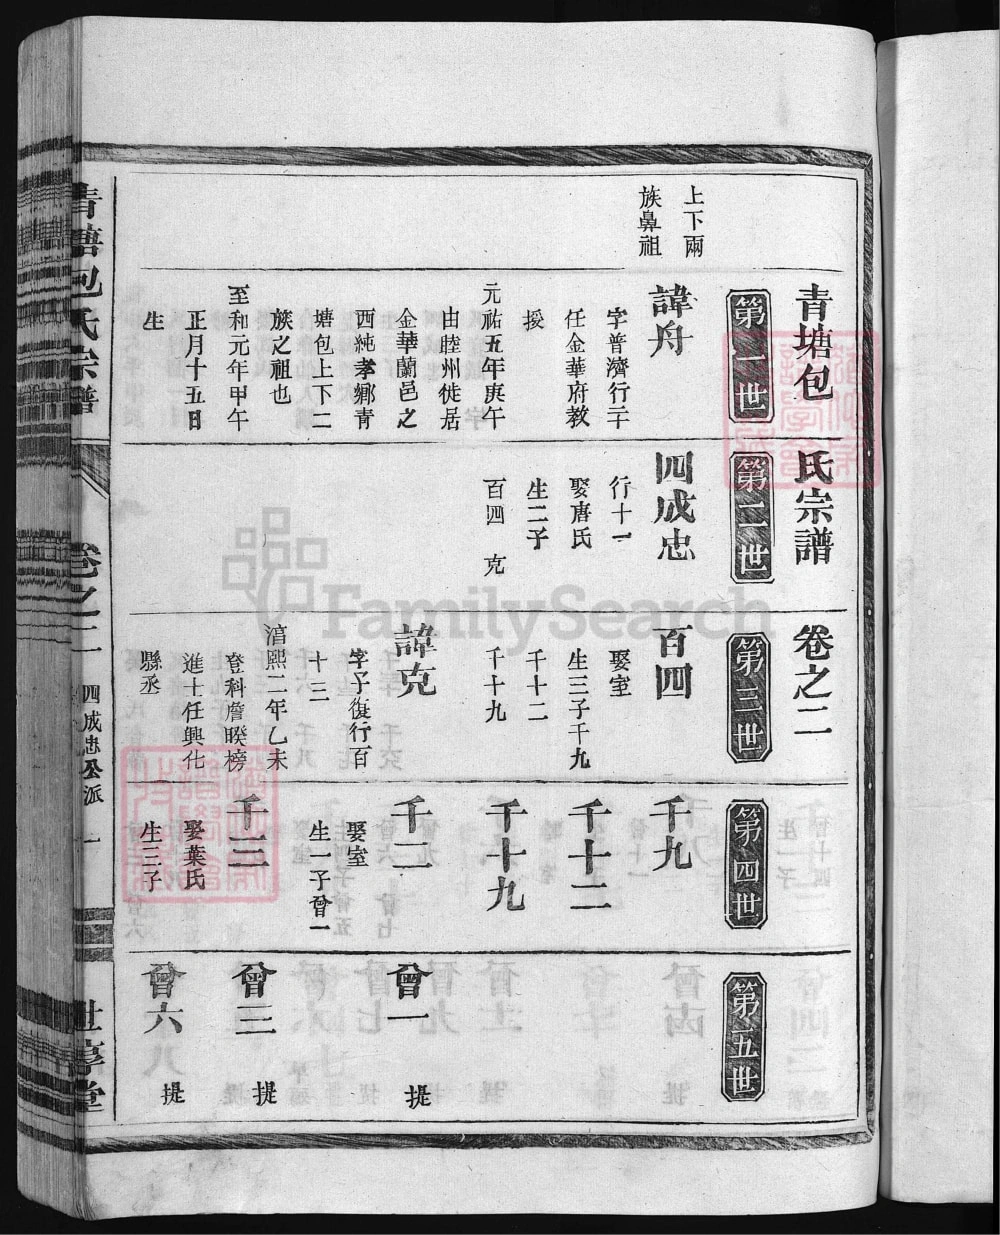 青塘包氏宗譜 卷之二
上下兩
族鼻祖
第一世
諱舟
字普濟行二千
任金華府教
授
元祐五年庚午
由睦州徙居
金華蘭邑之
西純孝鄉青
塘包上下二
族之祖也
至和元年甲午
正月十五日
生
第二世
四成忠
行十一
娶唐氏
生二子
百四 克
第三世
百四
娶室
生三子千九
千十二
千十九
諱克
字予復行百
十三
淯熙二年乙未
登科詹騤榜
進士任興化
縣丞
第四世
千九
千十二
千十九
千二
娶室
生一子曾一
千三
娶葉氏
生三子
第五世
曾一
提
曾三
提
曾六
提
青塘包氏宗譜
卷之二
四成忠公派
一
世享堂
FamilySearch